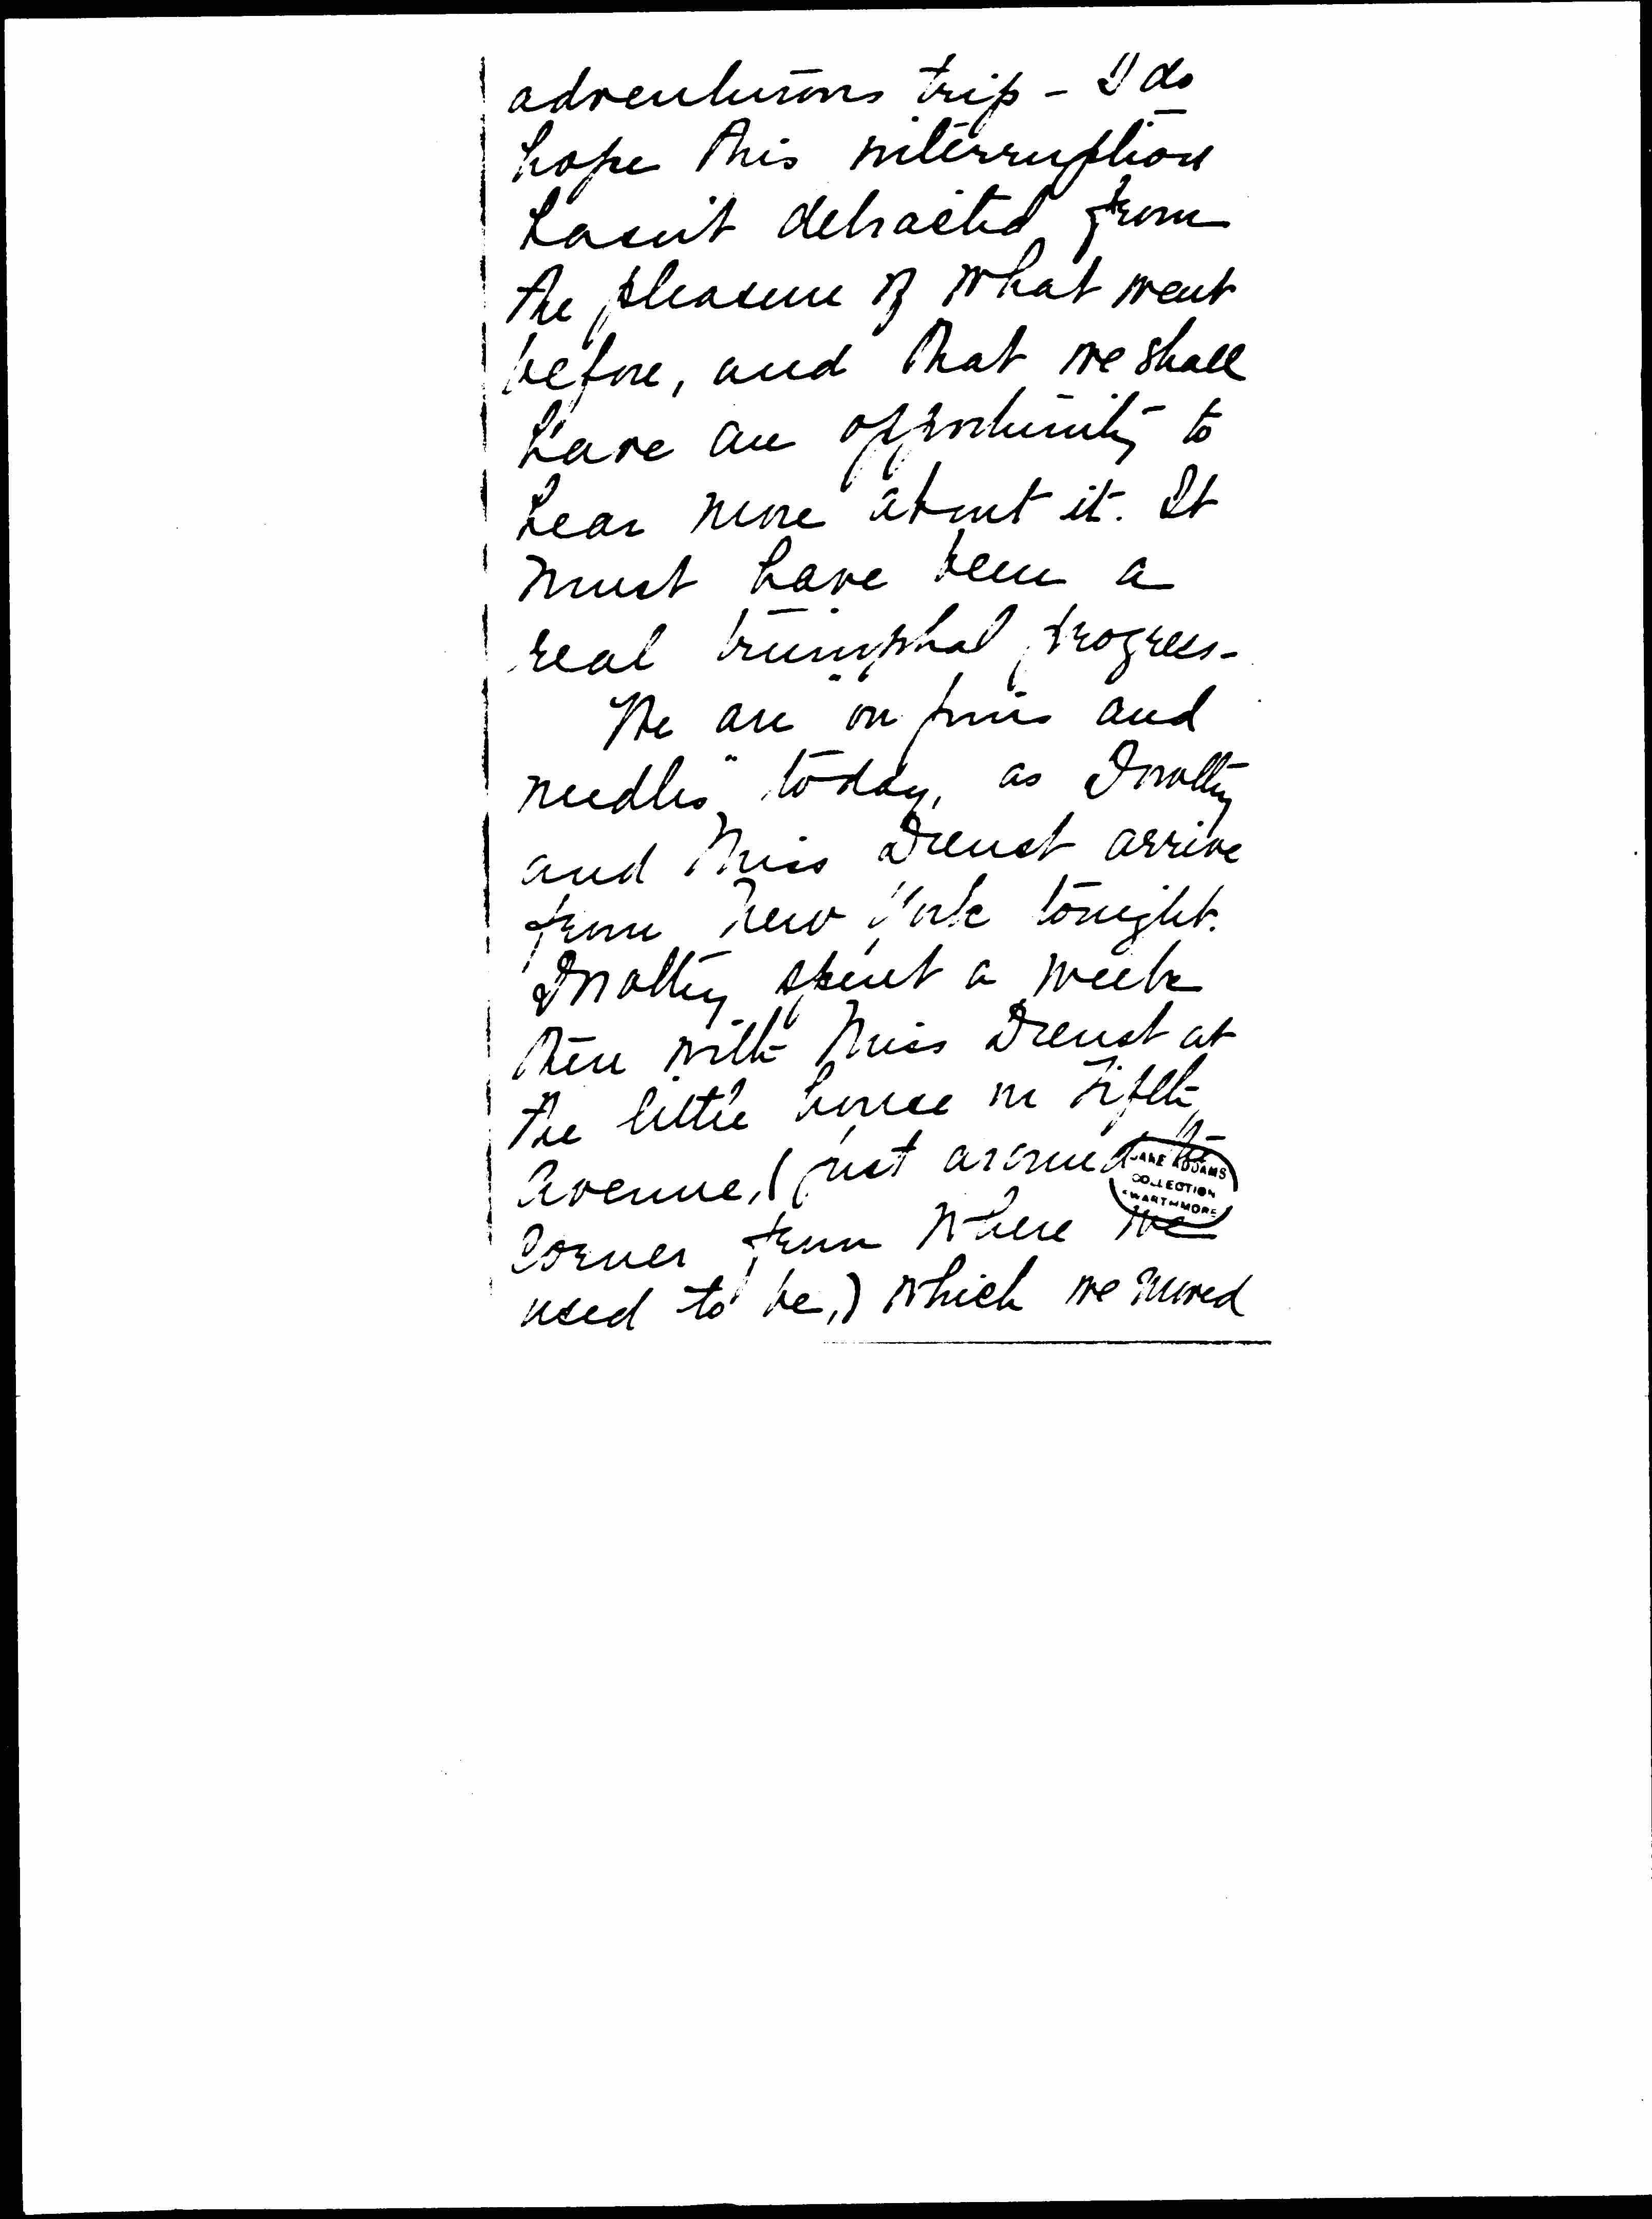 adventurous trip - I do
hope this interruption
hasn't detracted from
the pleasure of what went
before, and that we shall
have an opportunity to
hear more about it. It
must have been a
real triumphal progress -
We are "on pins and
needles" today, as Dorothy
and Miss Drenst arrive
from New York tonight.
Dorothy spent a week
there with Miss Drenst at
the little house in Fifth
Avenue, (just around the
corner from where we
used to be,) which we moved
JANE ADDAMS
COLLECTION
SWARTHMORE